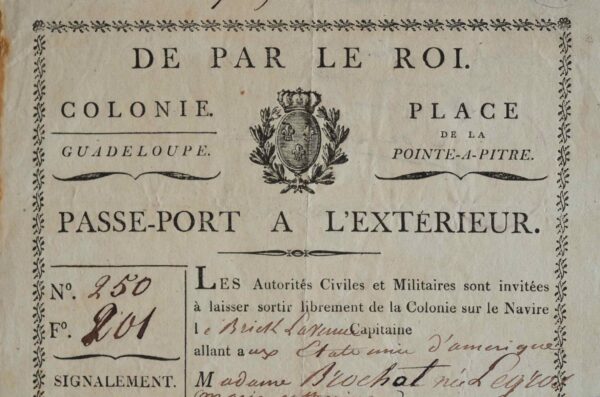 DE PAR LE ROI.
COLONIE.
GUADELOUPE.
PLACE
DE LA
POINTE-A-PITRE.
PASSE-PORT A L'EXTÉRIEUR.
No. 250
Fo. 201
SIGNALEMENT.
LES Autorités Civiles et Militaires sont invitées
à laisser sortir librement de la Colonie sur le Navire
le Brick Capitaine
allant aux Etats unie d'amerique
Madame Brochot née Legros